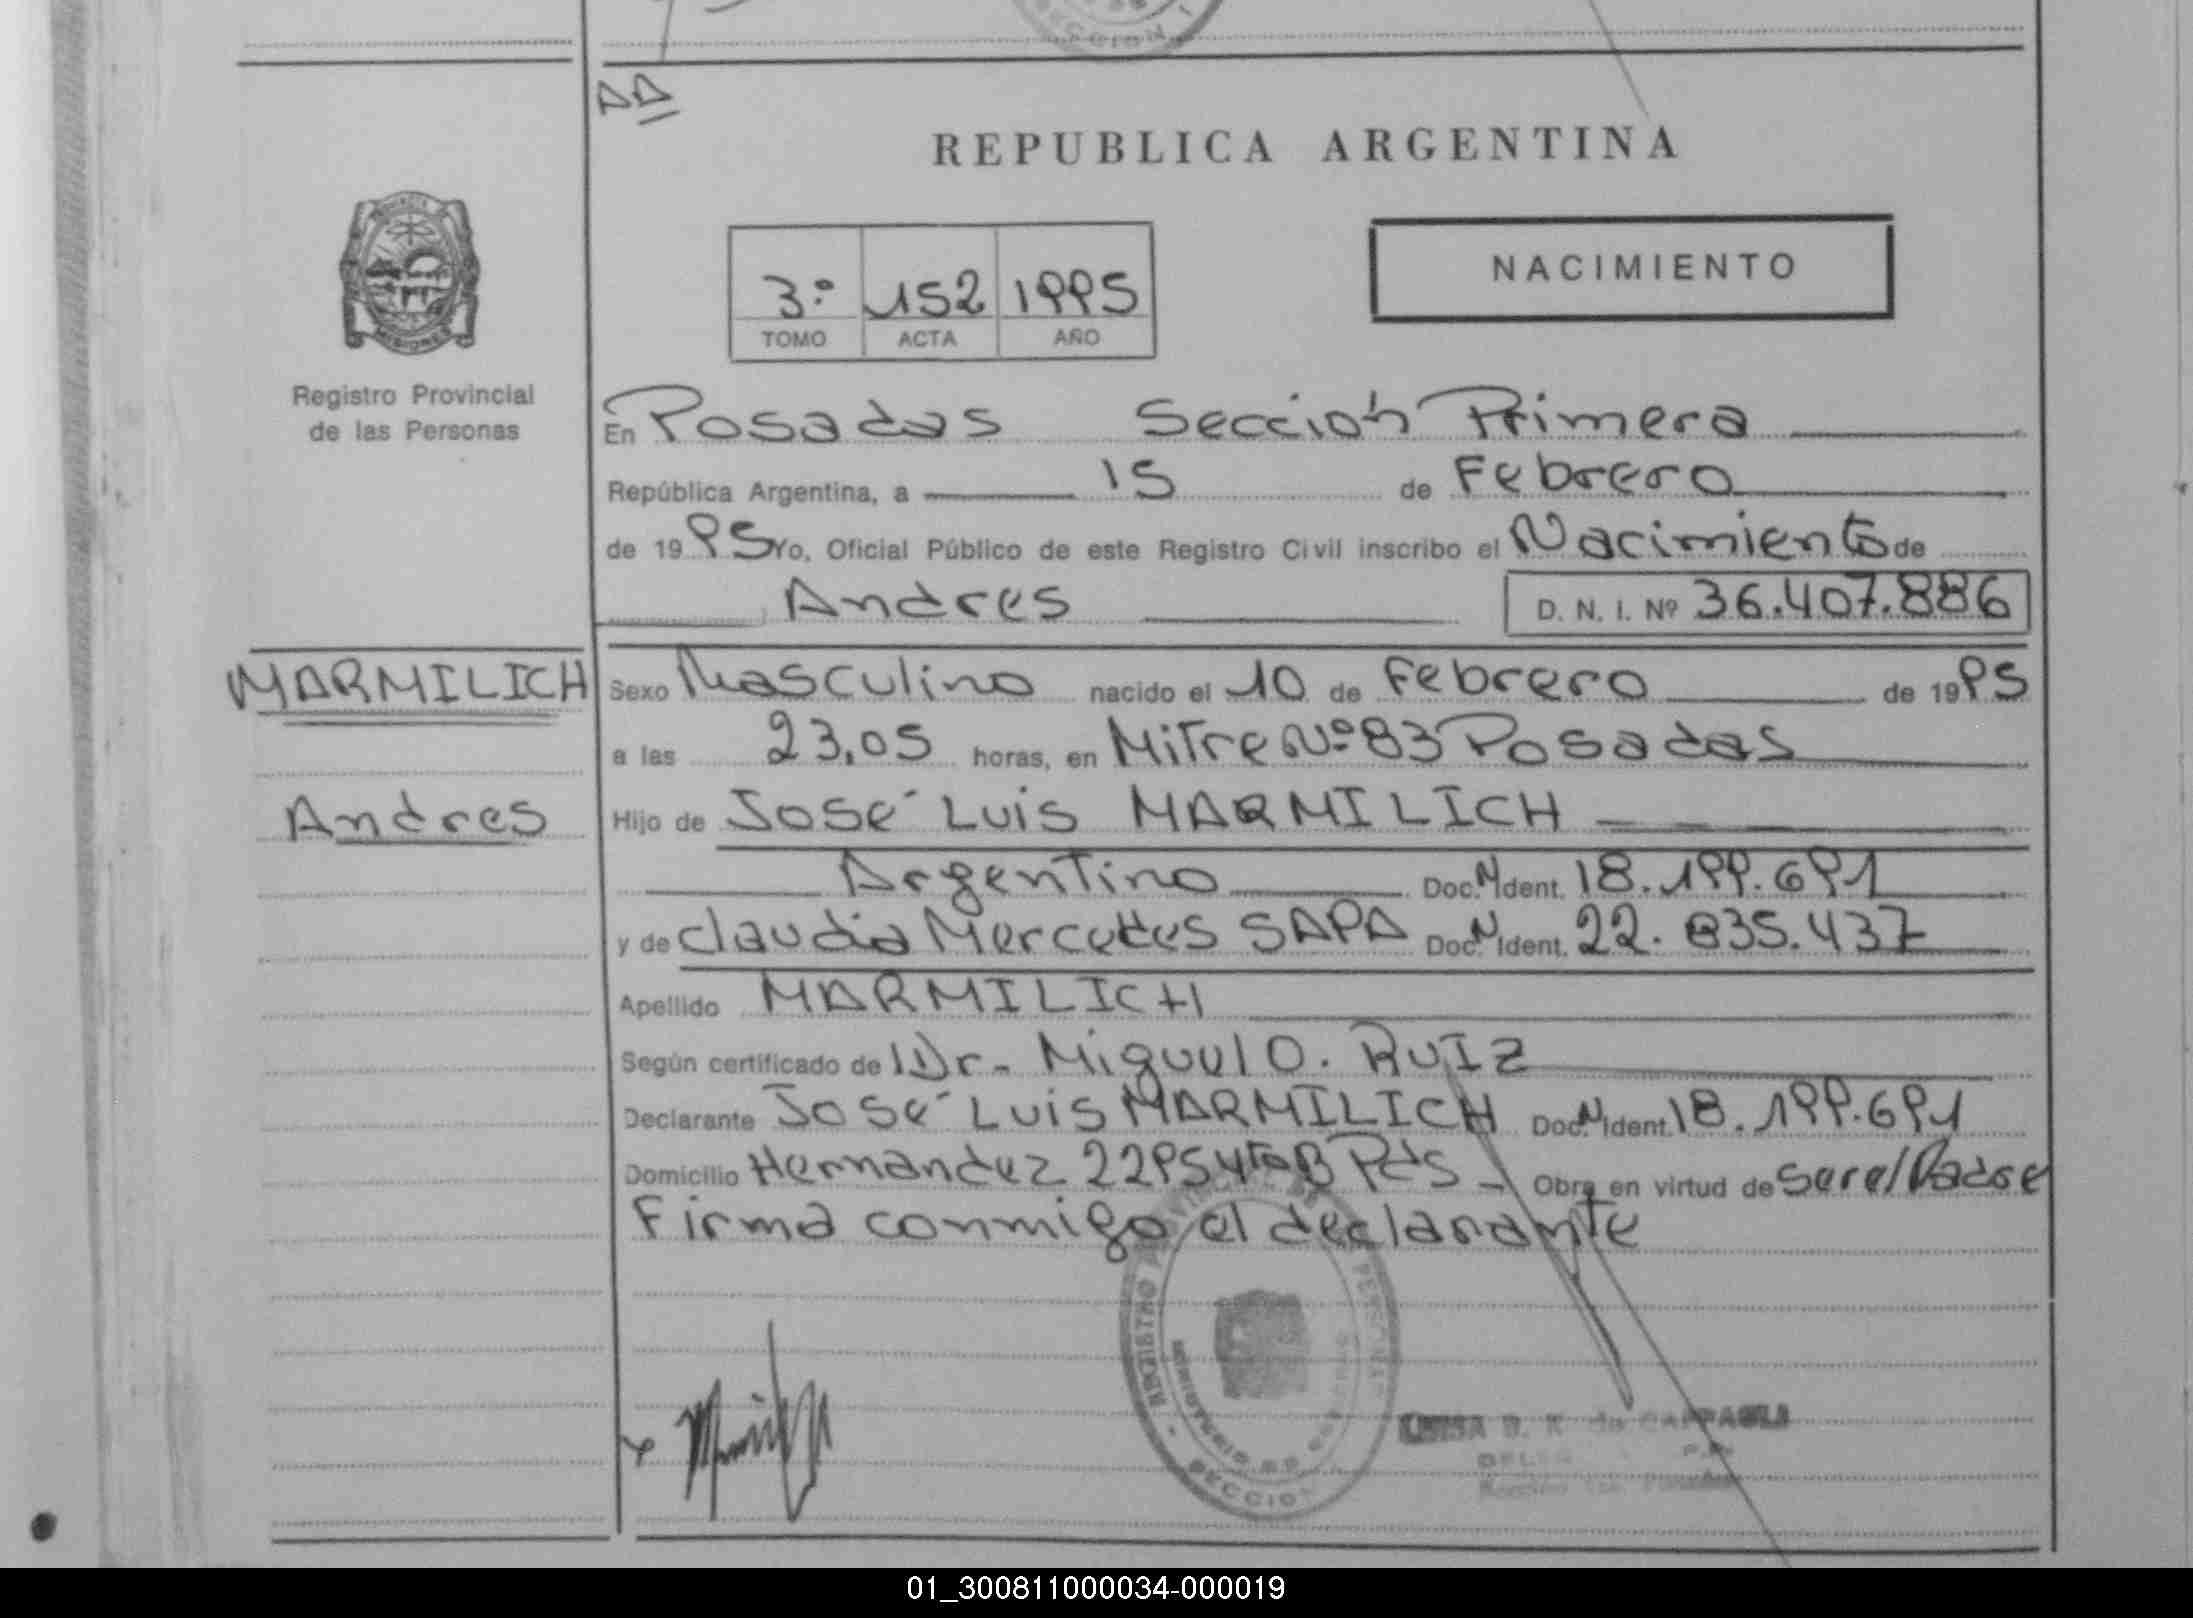 SECCION 1
AA
REPUBLICA ARGENTINA
NACIMIENTO
3º 152 1995
TOMO ACTA AÑO
MISIONES
Registro Provincial
de las Personas
En Posadas Sección Primera
República Argentina, a 15 de Febrero
de 1995 Yo, Oficial Público de este Registro Civil inscribo el Nacimiento de
Andres D. N. I. Nº 36.407.886
MARMILICH
Andres
Sexo Masculino nacido el 10 de Febrero de 1995
a las 23,05 horas, en Mitre Nº 83 Posadas
Hijo de José Luis MARMILICH
Argentino Doc. N Ident. 18.199.691
y de Claudia Mercedes SAPA Doc. N Ident. 22.835.437
Apellido MARMILICH
Según certificado de Dr. Miguel O. RUIZ
Declarante José Luis MARMILICH Doc. N Ident. 18.199.691
Domicilio Hernandez 2295 4to B Pds - Obra en virtud de ser el Padre
Firma conmigo el declarante
REGISTRO PROVINCIAL DE LAS PERSONAS
MINISTERIO DE GOBIERNO
SECCION
01_300811000034-000019